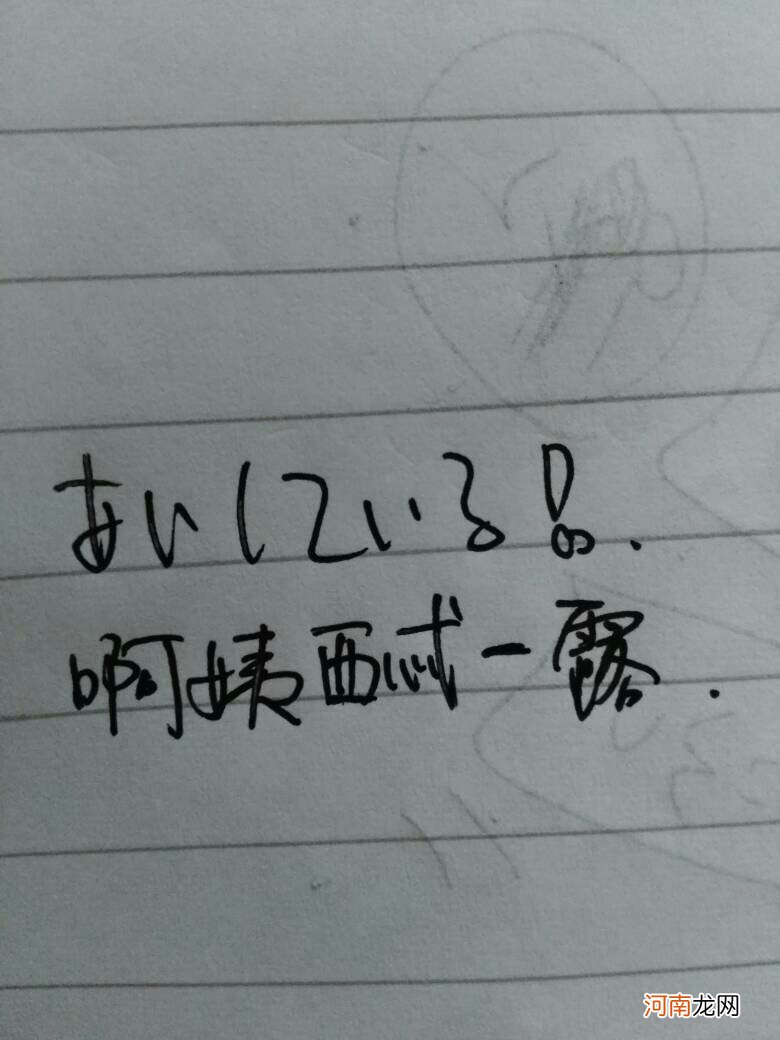 あいしている!
啊姨西忒一露.
河南龙网